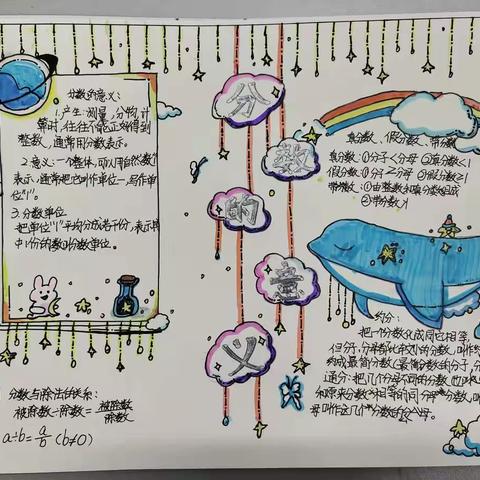 分数的意义
分数的意义:
1.产生:测量,分物,计
算时,往往不能正好得到
整数,通常用分数表示。
2.意义:一个整体,可以用自然数1
表示,通常把它叫作单位一,写作单
位"1"。
3.分数单位
把单位"1"平均分成若干份,表示其
中1份的数叫分数单位。
分数与除法的关系:
被除数÷除数=被除数/除数
a÷b=a/b (b≠0)
真分数、假分数、带分数
真分数:①分子<分母 ②真分数<1
假分数:①分子≥分母 ②假分数≥1
带分数:①由整数和真分数组成
②带分数>1
约分:
把一个分数化成同它相等
但分子,分母都比较小的分数,叫作约
约成最简分数(最简分数的分子,分
通分:把几个母不同的分数,也叫
和原来分数相等的同分母分数,叫
母叫作这几个分数的公分母。